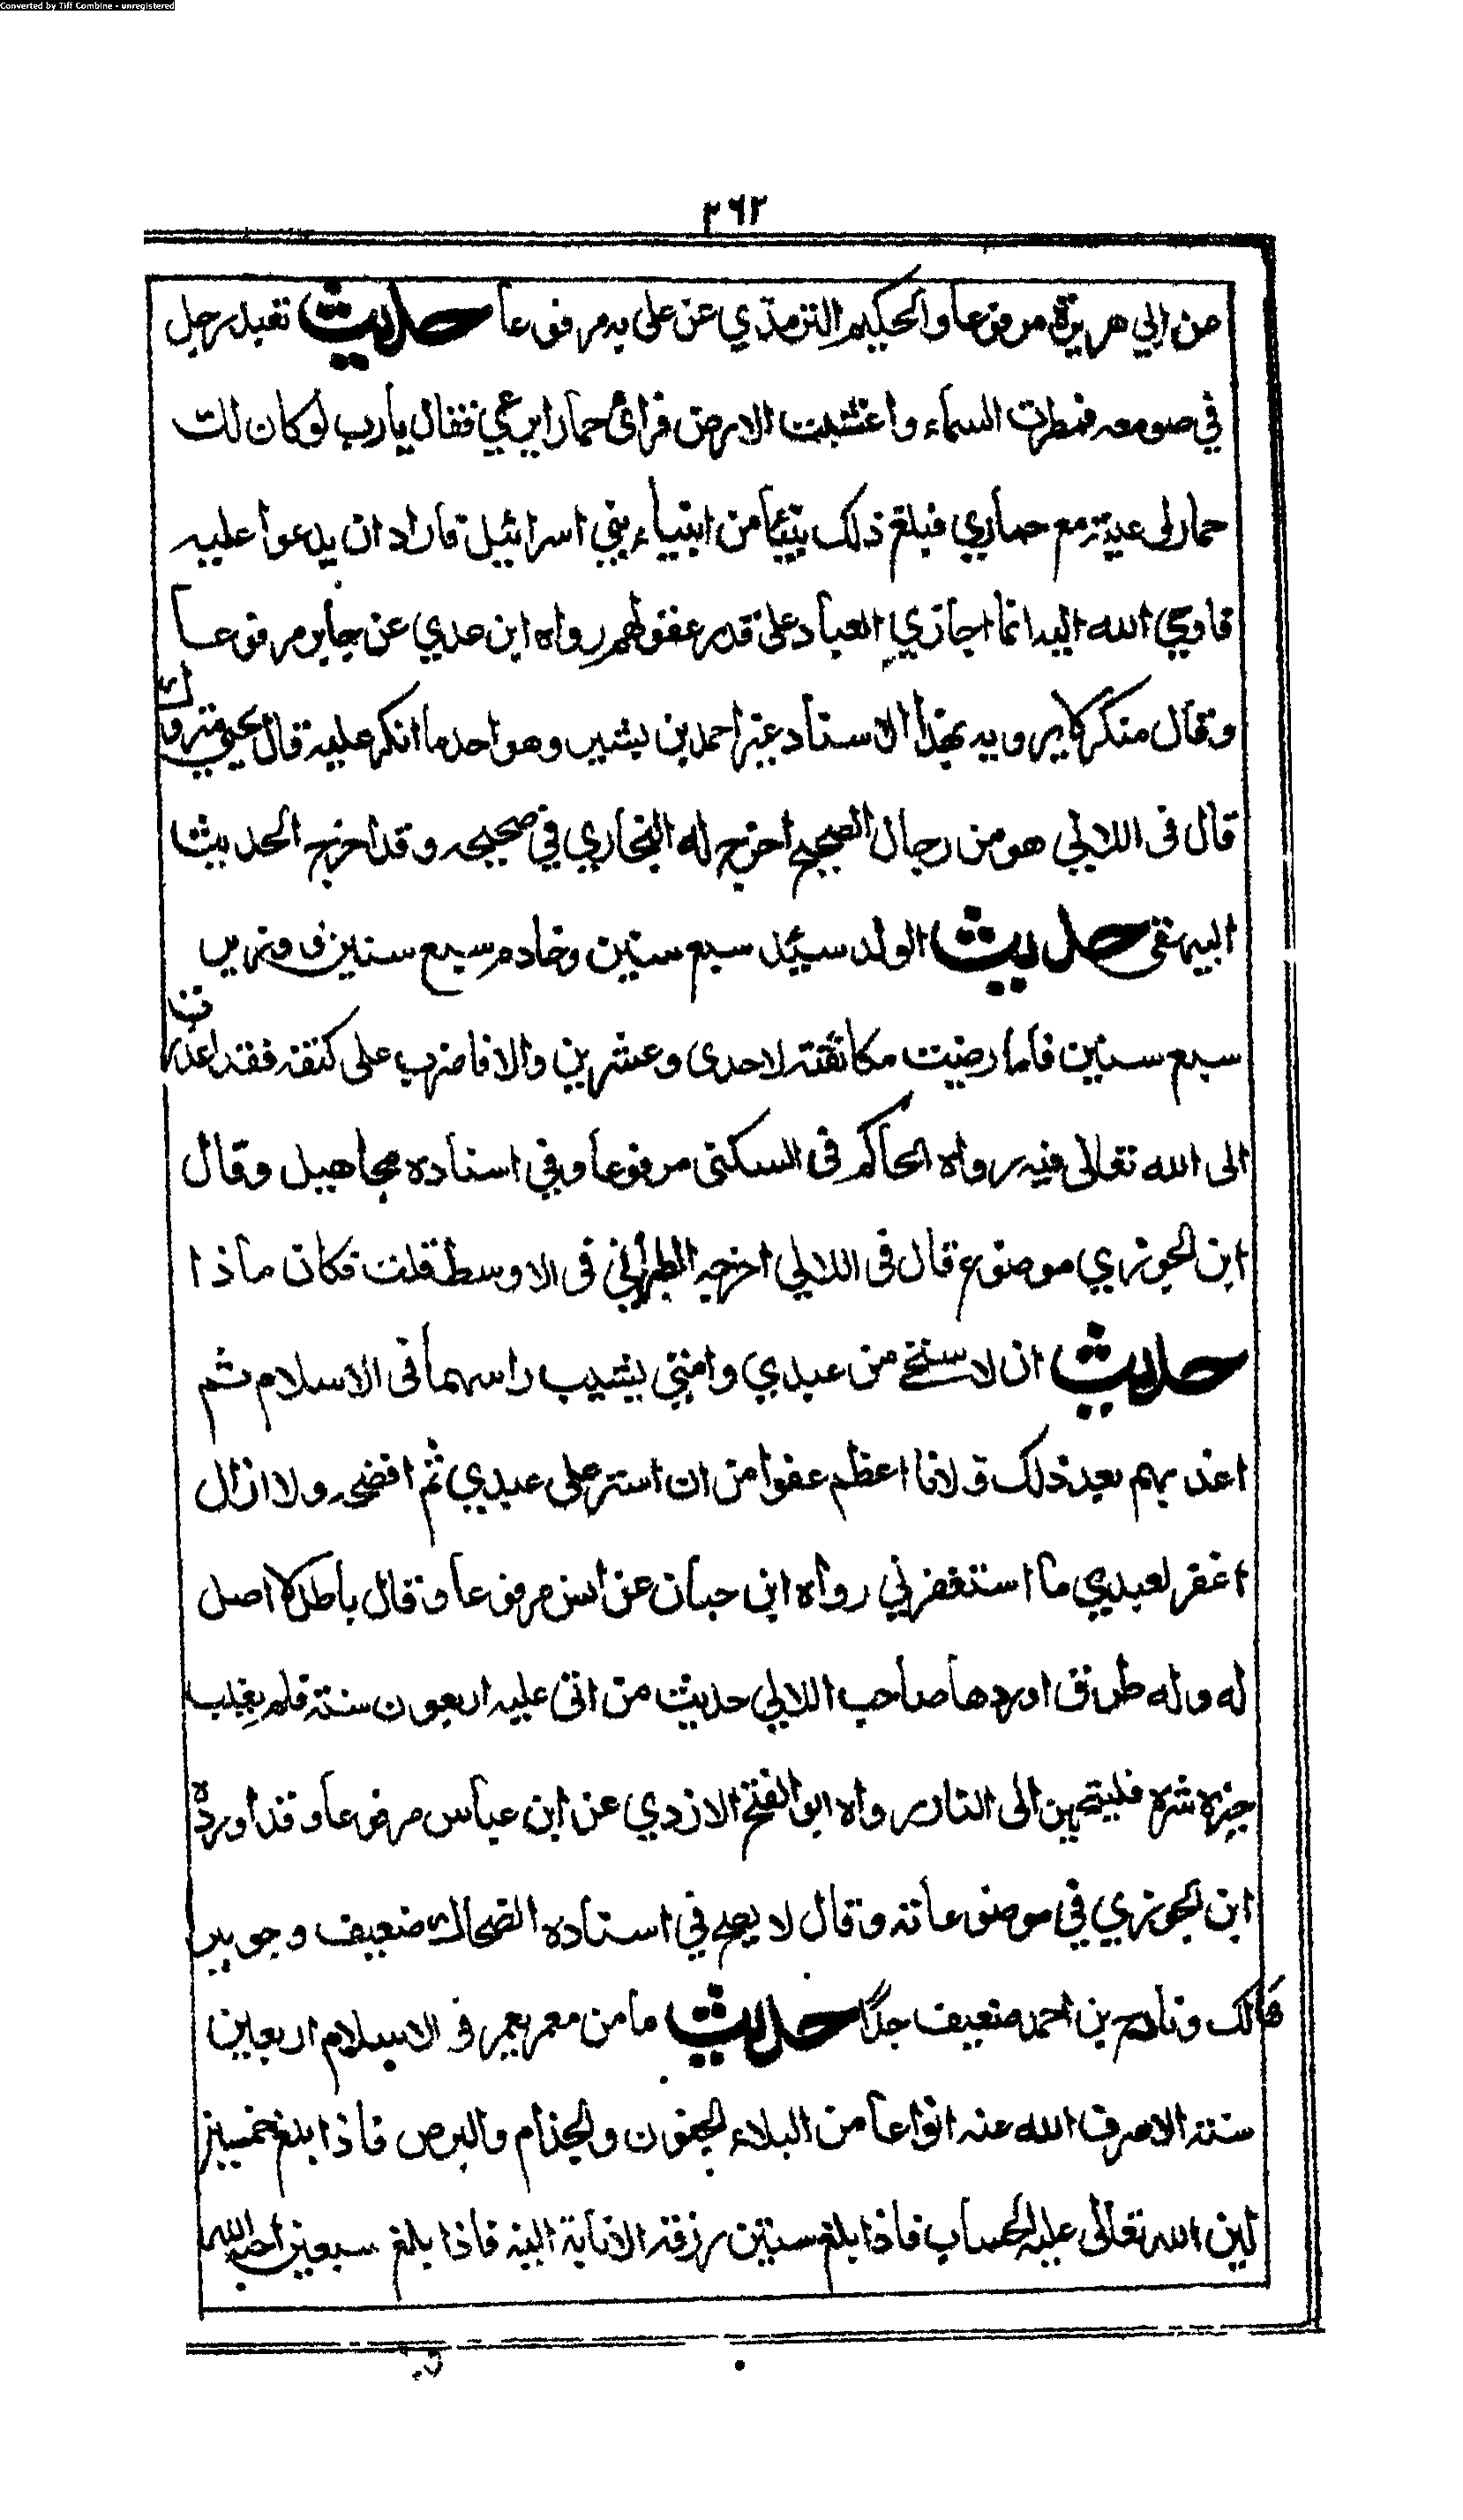 Converted by Tiff Combine - unregistered
٢٦٢
عن ابي هريرة مرفوعا والحكيم الترمذي عن على به مرفوعا حديث تعبد رجل
في صومعه فمطرت السماء واعشبت الارض فرائ حمارا يرعي فقال يارب لو كان لك
حمار لى عيته مع حماري فبلغ ذلك نبيئا من انبياء بني اسرائيل فاراد ان يدعوا عليه
فاوحي الله اليه انما اجازي العباد على قدر عقولهم رواه ابن عدي عن جابر مرفوعا
وقال منكر لا يرويه بهذا الاسناد غير احمد بن بشير وهو احد ما انكر عليه قال يحيى متروك
قال فى اللالي هو من رجال الصحيح اخرج له البخاري في صحيحه وقد اخرج الحديث
البيهقى حديث الولد سيد سبع سنين وخادم سبع سنين ووزير
سبع سنين فاما رضيت مكانفته لاحدى وعشرين والا فاضرب على كتفه فقد اعذرت
الى الله تعالى فيه رواه الحاكم فى السكنى مرفوعا وفي اسناده مجاهيل وقال
ابن الجوزي موضوع قال فى اللالي اخرجه الطبراني فى الاوسط قلت فكان ماذا
حديث ان لاستحي من عبدي وامتي يشيب راسهما فى الاسلام ثم
اعذبهم بعد ذلك ولانا اعظم عفوا من ان استر على عبدي ثم افضحه ولا ازال
اغفر لعبدي ما استغفرني رواه ابن حبان عن انس مرفوعا وقال باطل لا اصل
له وله طرق اوردها صاحب اللالي حديث من اتى عليه اربعون سنة فلم يغلب
خيره شره فليتجهين الى النار رواه ابو الفتح الازدي عن ابن عباس مرفوعا وقد اورده
ابن الجوزي في موضوعاته وقال لا يصح في اسناده الضحاك ضعيف وجويبر
هالك وبادح بن احمد ضعيف جدا حديث ما من معمر يعمر فى الاسلام اربعين
سنة الا صرف الله عنه انواعا من البلاء الجنون والجذام والبرص فاذا بلغ خمسين
لين الله تعالى عليه الحساب فاذا بلغ ستين رزقه الانابة اليه فاذا بلغ سبعين احبه الله